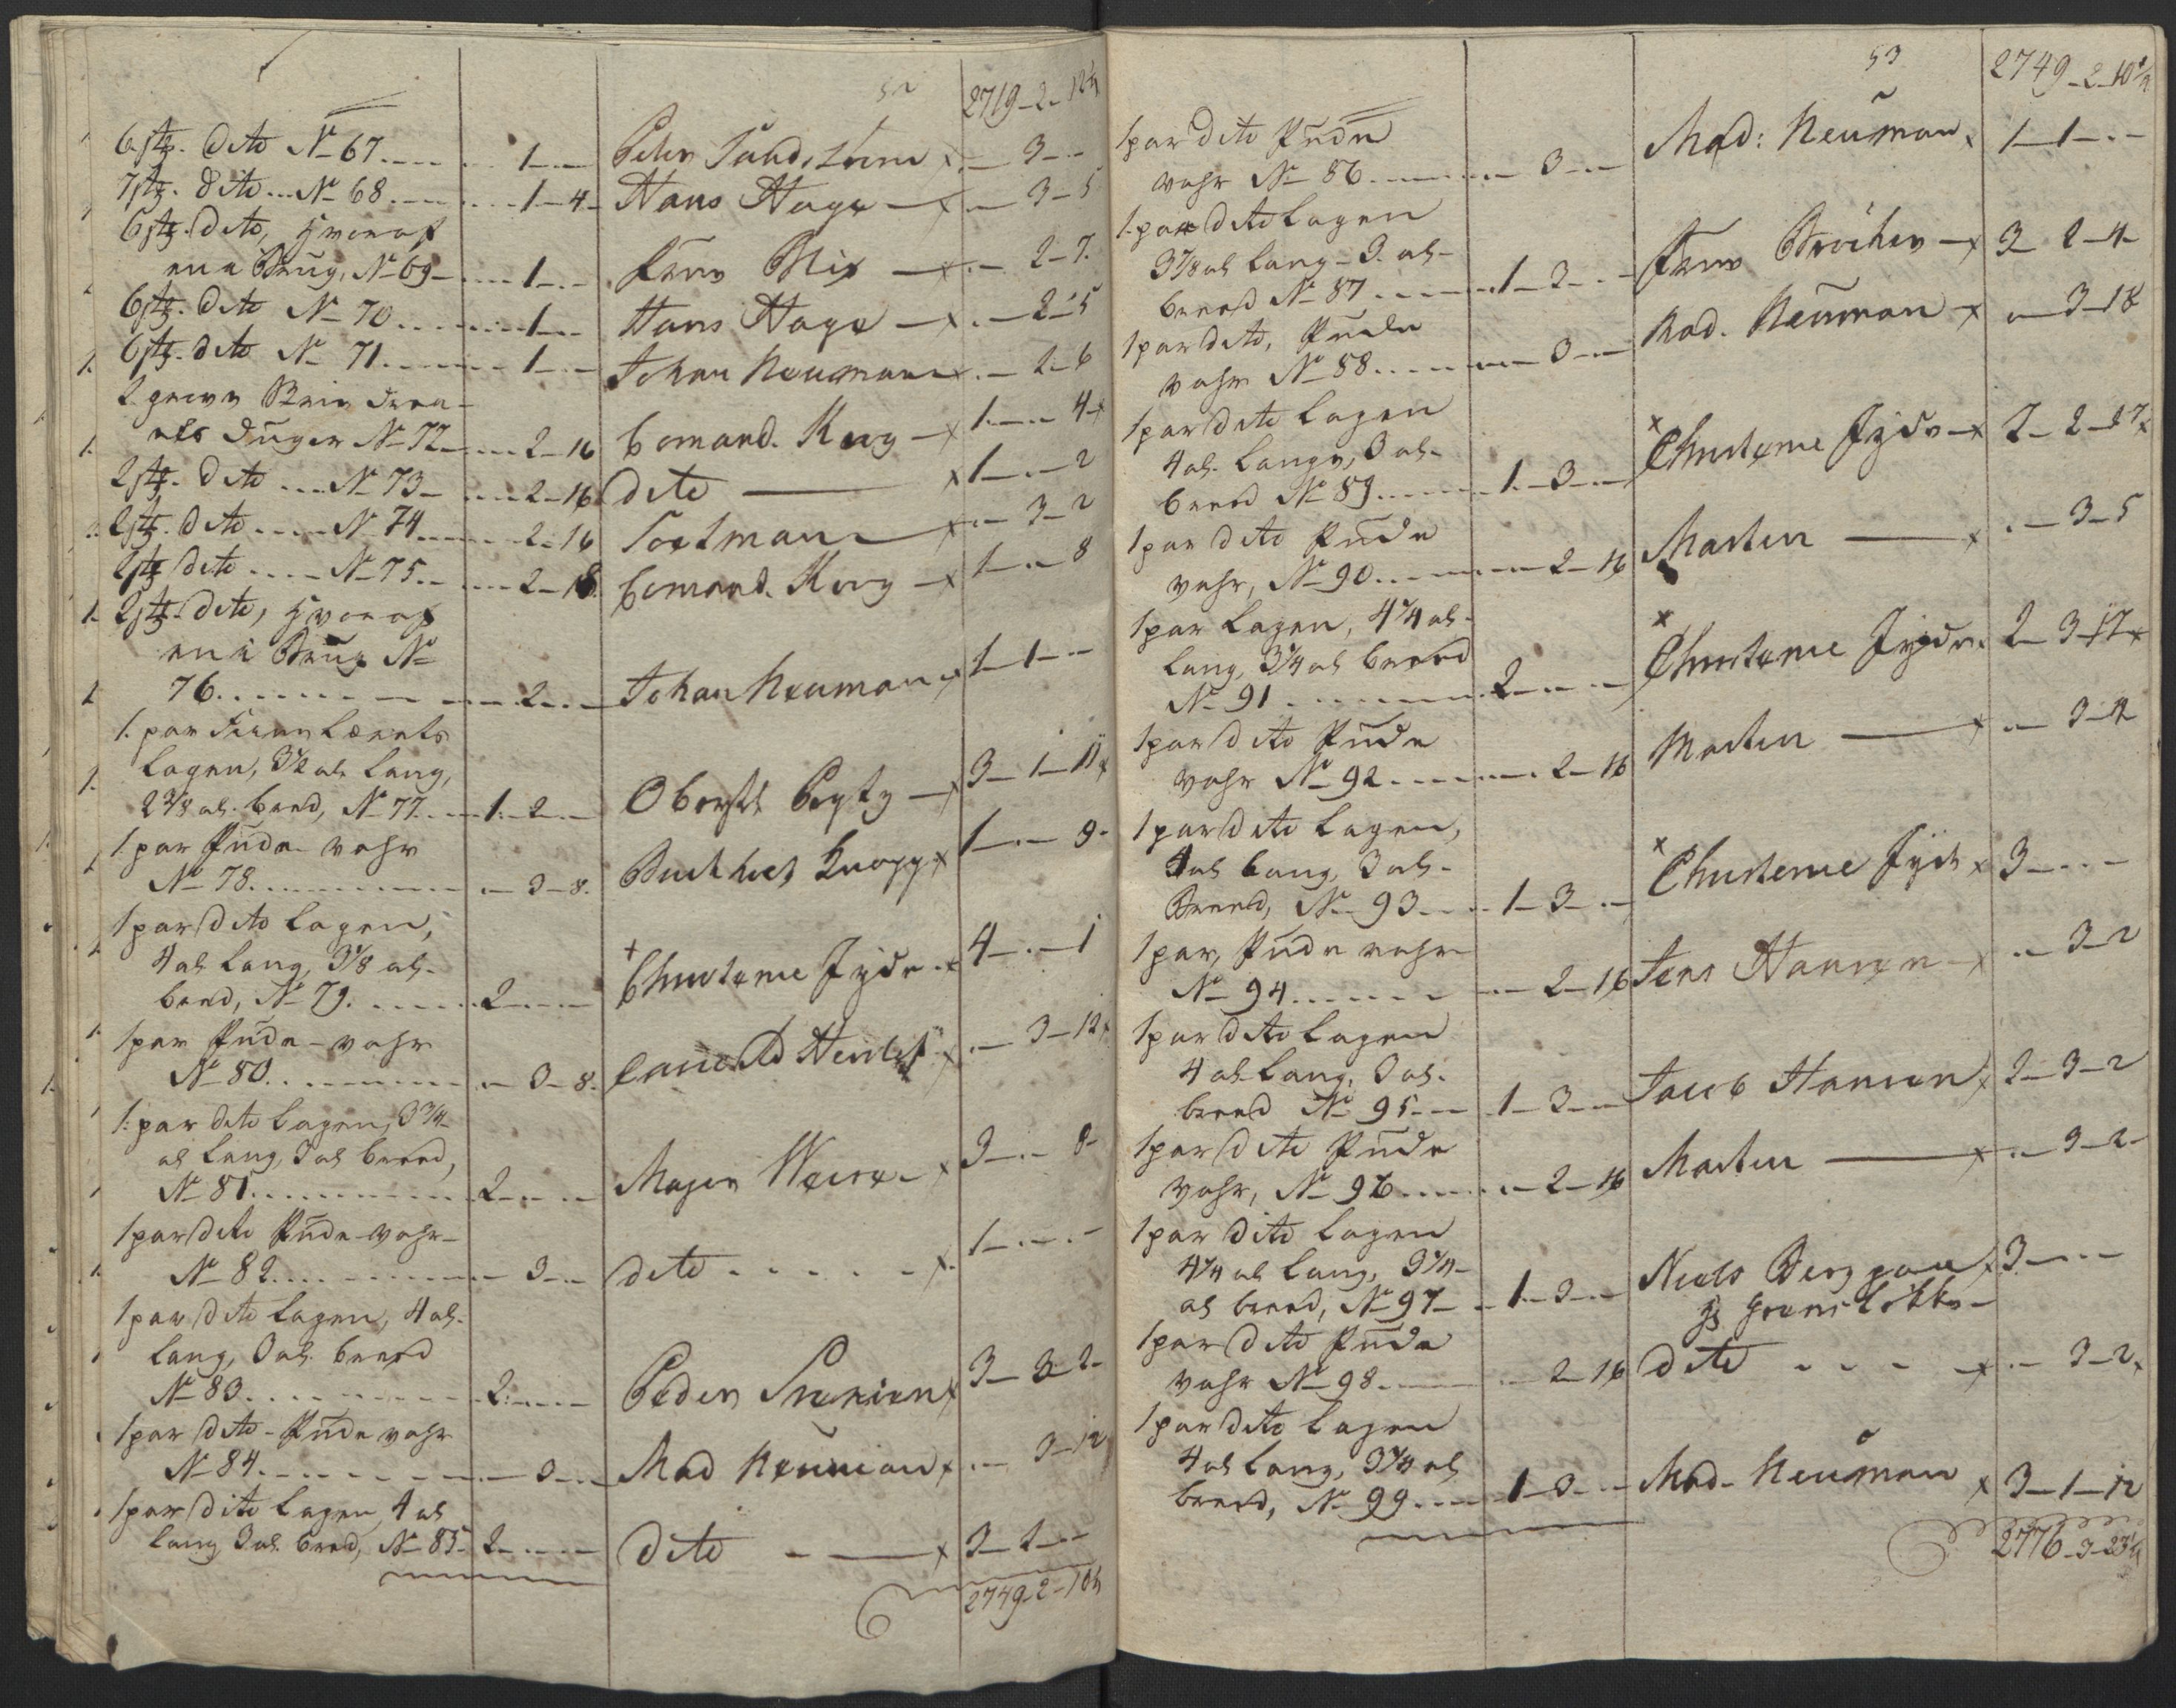 52
2719-2-12½
6 stz. dito No 67 .... 1-.- Peter Sand, x .- 3-.-
7 stz. dito ... No 68 .... 1-4- Hans Hage -x .- 3-5
6 stz. dito, hvoraf
en i Brug, No 69 - .... 1-.- Frue Blix -x .- 2-7.
6 stz. dito No 70 .... 1-.- Hans Hage -x .- 2-5
6 stz. dito No 71 .... 1-.- Johan Neumann x .- 2-6
2 grove
Duger No 72 .... 2-16 Comand. Krog -x 1-.- 4-x
2 stz. dito .... No 73 - .... 2-16 dito x 1-.- 2
2 stz. dito .... No 74 .... 2-16 Soelman x .- 3-2
2 stz dito .... No 75 .. .... 2-16 Comand. Krog -x 1-.- 8
2 stz. dito, hvoraf
en i Brug No
76 .... 2-.- Johan Neuman x 1-1-.-
1. par Lærrets
Lagen, 3½ al. lang,
2⅜ al. bred, No 77 .... 1-2-.- Oberstl. x 3-1-11 x
1 par Pude-vahr
No 78 .... .- 3-8. x 1-.- 9-
1 par dito Lagen,
4 al. lang, 3⅛ al.
bred, No 79. .... 2-.-.- + Christence Jyde x 4-.-1
1 par Pude-vahr
No 80 .... .- 3-8. x .- 3-12 x
1. par dito Lagen, 3¾
al lang, 3 al breed,
No 81 .... 2-.-.- Major Weise x 3-.- 8-
1 par dito Pude-vahr-
No 82 .... .- 3-.- dito ..... x 1-.-.-
1 par dito Lagen, 4 al.
lang, 3 al. breed
No 83 .... 2-.-.- Peder x 3-3-2-
1 par dito-Pudevahr
No 84 .... .- 3-.- Mad Neuman x .- 3-12
1 par dito Lagen, 4 al
lang 3 al. bred, No 85- 2-.-.- dito x 3-2-.-
2749-2-10½
53
2749-2-10½
1 par dito Pude
vahr No 86 .... .- 3-.- Mad: Neuman x 1-1-.-
1. par dito Lagen
3⅞ al lang - 3. al-
breed No 87 .... 1-2-.- Frue Bröcher -x 3-2-4-
1 par dito, Pude
vahr No 88 .... .- 3-.- Mad. Neuman x .- 3-18
1 par dito Lagen
4 al. lange, 3 al.
breed No 89 .... 1-3-.- x Christence Jyde x 2-2-17 x
1 par dito Pude
vahr, No 90 .... .- 2-16 Morten x .- 3-5
1 par Lagen, 4¼ al.
lang, 3¼ al breed
No 91 .... 2-.-.- x Christence Jyde x 2-3-17 x
1 par dito Pude
vahr No 92 .... .- 2-16 Morten x .- 3-4
1 par dito Lagen,
4 al lang, 3 al.
Breed, No 93 ... 1-3-.- x Christence Jyde x 3-.-.-
1 par, Pude vahr
No 94 .... .- 2-16 Jens Hansen x .- 3-2
1 par dito Lagen
4 al lang, 3 al.
breed No 95 -.- 1-3-.- Jacob Hansen x 2-3-2
1 par dito Pude
vahr, No 96 .... .- 2-16 Morten x .- 3-2-
1 par dito Lagen
4¼ al lang, 3¼
al breed, No 97 - 1-3-.- Niels x 3-.-.-
paa Grønsløkke
1 par dito Pude
vahr No 98 .... .- 2-16 dito .... x .- 3-2 x
1 par dito Lagen
4 al lang, 3¼ al
breed, No 99 .... 1-3-.- Mad. Neuman x 3-1-12
2776-3-23½